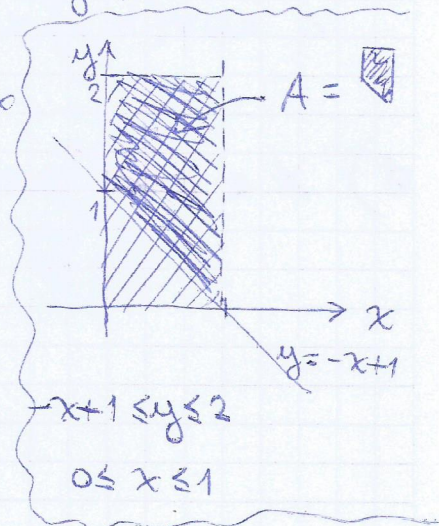 y
2
A =
1
1
x
y=-x+1
-x+1 ≤ y ≤ 2
0 ≤ x ≤ 1